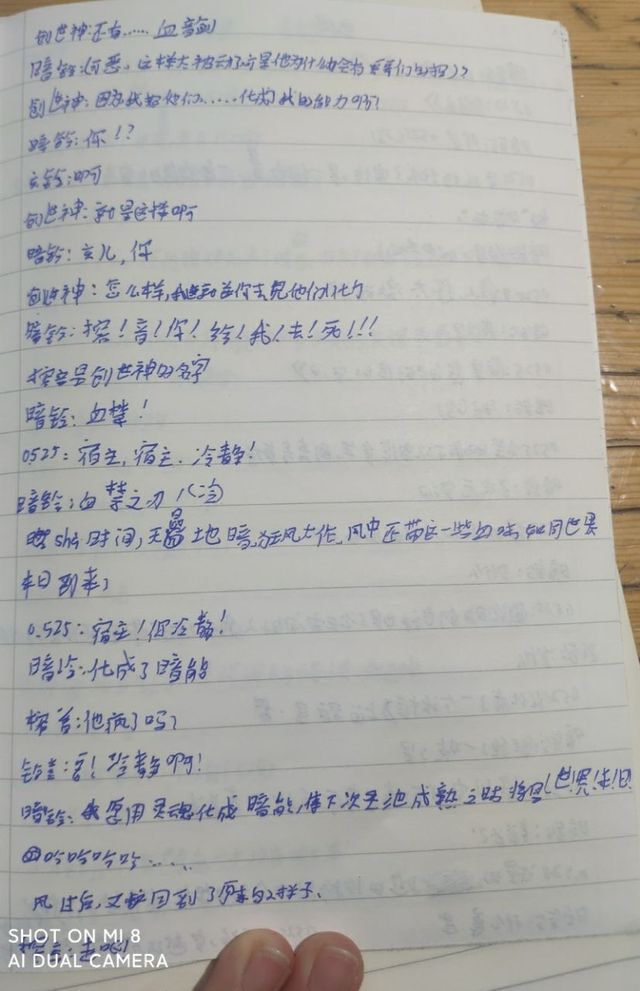 创世神:还有……血音剑
暗铃:可恶,这样大被动了,可是他为什么会有哥们的招)?
创世神:因为我把他们……化为我的能力了吗?
暗铃:你!?
玄铃:啊
创世神:就是这样啊
暗铃:玄儿,你
创世神:怎么样,我送你去见他们
暗铃:探!音!你!给!我!去!死!!!
探音是创世神的名字
暗铃:血禁!
0.525:宿主,宿主.冷静!
暗铃:血禁之刃
sha时间,天昏地暗,狂风大作,风中还带一些血味,如同世界
末日到来,
0.525:宿主!你冷静!
暗铃:化成了暗能
探音:他疯了吗?
铃:冷静啊!
暗铃:我要用灵魂化成暗能,待下次灵池成熟之时,将是!世!界!末!日!
哈哈哈哈……
风过后,又回到了原来的样子.
探音:走吧!
SHOT ON MI 8
AI DUAL CAMERA